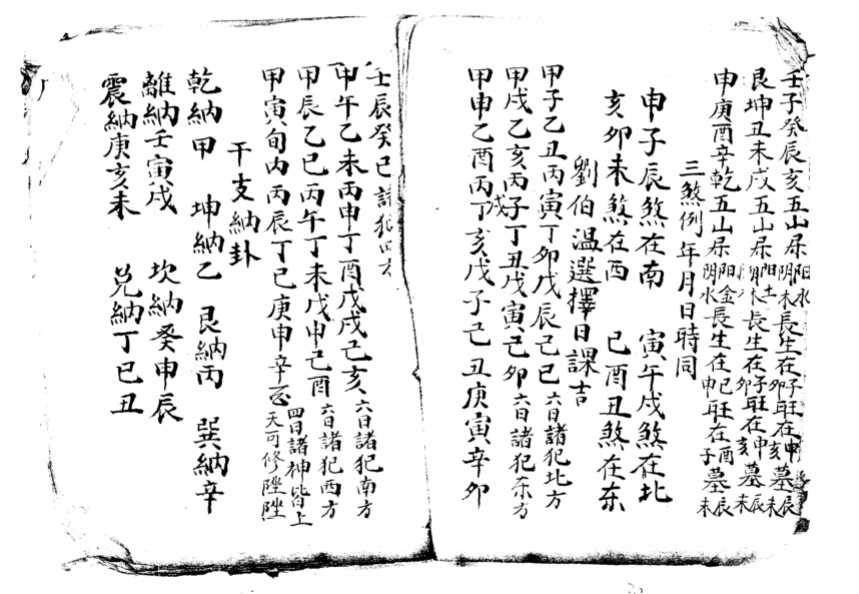 壬子癸辰亥五山屬阳水阴木長生在子卯旺在申亥墓辰未
艮坤丑未戌五山屬阳土長生在子卯旺在申亥墓辰未
申庚酉辛乾五山屬阳金阴水長生在巳申旺在酉子墓辰未
三煞例年月日時同
申子辰煞在南 寅午戌煞在北
亥卯未煞在西 巳酉丑煞在东
劉伯温選擇日課吉
甲子乙丑丙寅丁卯戊辰己巳六日諸犯北方
甲戌乙亥丙子丁丑戊寅己卯六日諸犯东方
甲申乙酉丙戌丁亥戊子己丑庚寅辛卯
壬辰癸巳諸犯四方
甲午乙未丙申丁酉戊戌己亥六日諸犯南方
甲辰乙巳丙午丁未戊申己酉六日諸犯西方
甲寅旬内丙辰丁巳庚申辛四日諸神皆上天可修陞陞
干支納卦
乾納甲 坤納乙 艮納丙 巽納辛
離納壬寅戌 坎納癸申辰
震納庚亥未 兑納丁巳丑